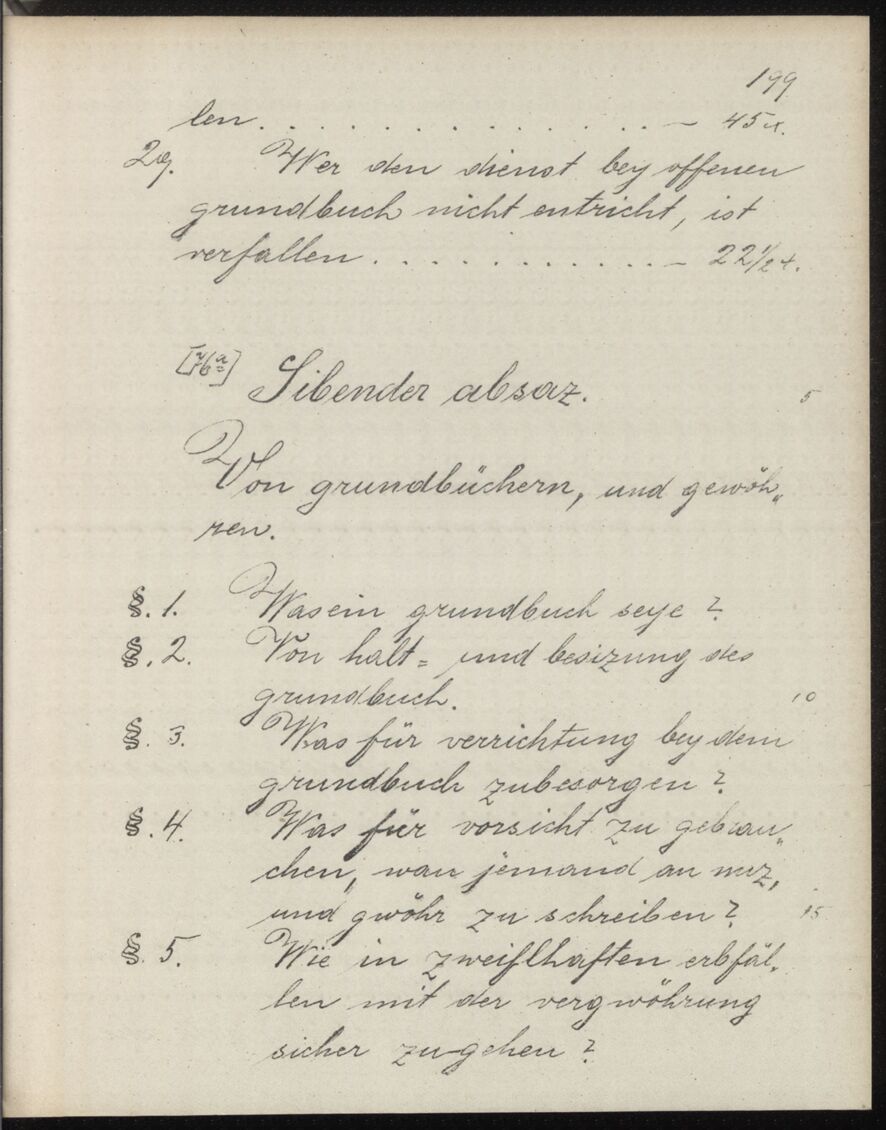 199
len . . . . . . . . . . . . . . . — 45 x.
29. Wer den dienst bey offenen
grundbuch nicht entricht, ist
verfallen . . . . . . . . . . . . — 22 1/2 x.
[76a]
Sibender absaz. 5
Von grundbüchern, und gewöh„
ren.
§. 1. Was ein grundbuch seye?
§. 2. Von halt= und besizung des
grundbuch. 10
§. 3. Was für verrichtung bey dem
grundbuch zubesorgen?
§. 4. Was für vorsicht zu gebrau„
chen, wan jemand an nuz,
und gwöhr zu schreiben? 15
§. 5. Wie in zweiflhaften erbfäl„
len mit der vergwöhrung
sicher zugehen?